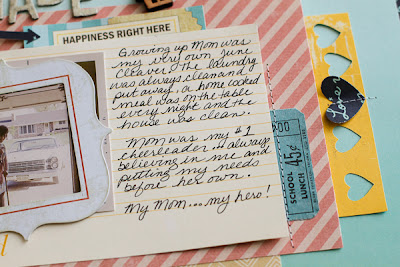 HAPPINESS RIGHT HERE
Growing up Mom was
my very own June
Cleaver. The laundry
was always clean and
put away, a home cooked
meal was on the table
every night and the
house was clean.
Mom was my #1
cheerleader... always
believing in me and
putting my needs
before her own.
My Mom... my hero!
SCHOOL LUNCH 45¢
Love